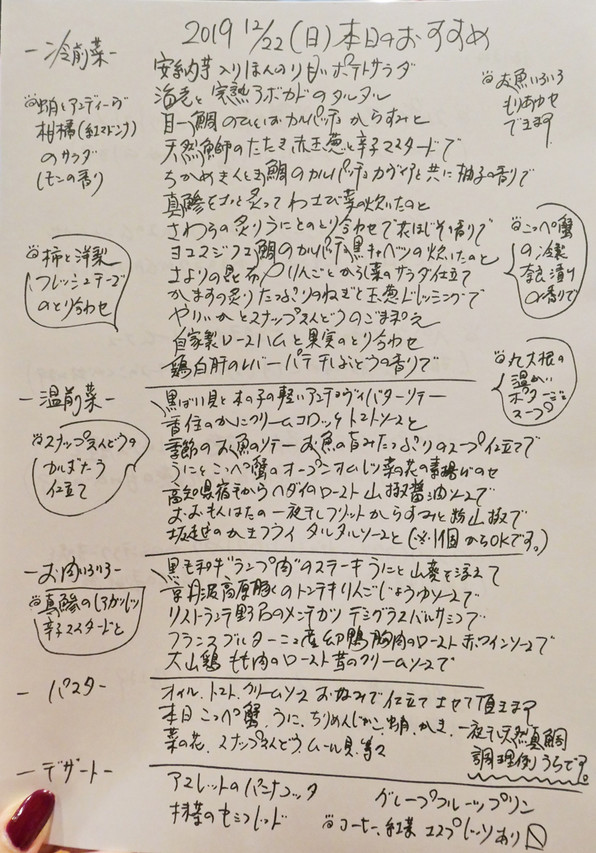 2019 12/22(日)本日のおすすめ
ー冷前菜ー
安納芋入りほんのり甘いポテトサラダ
海老と完熟アボカドのタルタル
目一鯛のひと塩カルパッチョからすみと
天然鰤のたたき赤玉葱と辛子マスタードで
鯛のカルパッチョ キャヴィアと共に柚子の香りで
真鯵をさっと炙って わさび菜の炊いたのと
さわらの炙りうにとのとり合わせで花ほじその香りで
鯛のカルパッチョ 黒キャベツの炊いたのと
さよりの昆布〆りんごとから菜のサラダ仕立て
かますの炙りたっぷりのねぎと玉葱ドレッシングで
やりいかとスナップえんどうのごまポン
自家製ロースハムと果実のとり合わせ
鶏白肝のレバーパテ干しぶどうの香りで
蛸とアンディーブ
柑橘(紅マドンナ)
のサラダ
レモンの香り
柿と洋梨
フレッシュチーズ
のとり合わせ
お魚いろいろ
もりあわせ
できます
こっペ蟹
の冷製
奈良漬け
の香りで
丸大根の
温かい
ポタージュ
スープ
ー温前菜ー
黒ばい貝と木の子の軽いアンチョヴィバターソテー
香住のかにクリームコロッケ トマトソースと
季節のお魚のソテー お魚の旨みたっぷりのスープ仕立てで
うにとこっペ蟹のオープンオムレツ 菜の花の素揚げのせ
高知県宿毛からヘダイのロースト 山椒醤油ソースで
おおもんはたの一夜干しフリット からすみと粉山椒で
坂越のかきフライ タルタルソースと(※1個からOKです。)
スナップえんどうの
かるぼなーら
仕立て
ーお肉いろいろー
黒毛和牛"ランプ肉"のステーキ うにと山葵を添えて
京丹波高原豚のトンテキ りんごじょうゆソースで
リストランテ野呂のメンチカツ デミグラスバルサミコで
フランスブルターニュ産幼鴨胸肉のロースト 赤ワインソースで
大山鶏もも肉のロースト 茸のクリームソースで
真鯵の
辛子マスタードと
ー パスター
オイル、トマト、クリームソース お好みで仕立てさせて頂きます
本日 こっペ蟹、うに、ちりめんじゃこ、蛸、かき、一夜干し天然真鯛
菜の花、スナップえんどう、ムール貝、等々
調理例うらです。
ーデザートー
アマレットのパンナコッタ
グレープフルーツプリン
抹茶のセミフレッド
コーヒー、紅茶 エスプレッソあり